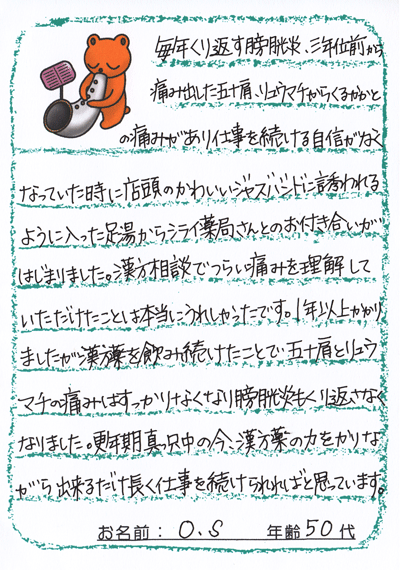 毎年くり返す膀胱炎、三年位前から
痛み出した五十肩、リュウマチからくるかかと
の痛みがあり仕事を続ける自信がなく
なっていた時に店頭のかわいいジャズバンドに誘われる
ように入った足湯からシライ薬局さんとのお付き合いが
はじまりました。漢方相談でつらい痛みを理解して
いただけたことは本当にうれしかったです。1年以上かかり
ましたが漢方薬を飲み続けたことで五十肩とリュウ
マチの痛みはすっかりなくなり膀胱炎もくり返さなく
なりました。更年期真っ只中の今、漢方薬の力をかりな
がら出来るだけ長く仕事を続けられればと思っています。
お名前: O.S 年齢50代